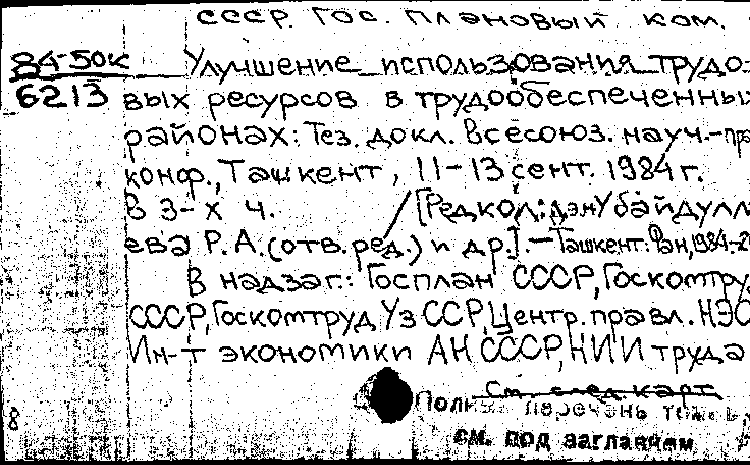 СССР. Гос. плановый ком.
84-50к Улучшение использования трудо-
6213 вых ресурсов в трудообеспеченны
районах: Тез. докл. Всесоюз. науч.-пр
конф., Ташкент, 11-13 сент. 1984 г.
В 3-х ч. / [Редкол: дэн Убайдулл
ева Р.А. (отв. ред.) и др.]. - Ташкент: Фан, 1984-2
В надзаг.: Госплан СССР, Госкомтру
СССР, Госкомтруд УзССР, Центр. правл. НЭО
Ин-т экономики АН СССР, НИИ труда
См. след карт
Полн перечень томов,
см. под заглавием
8